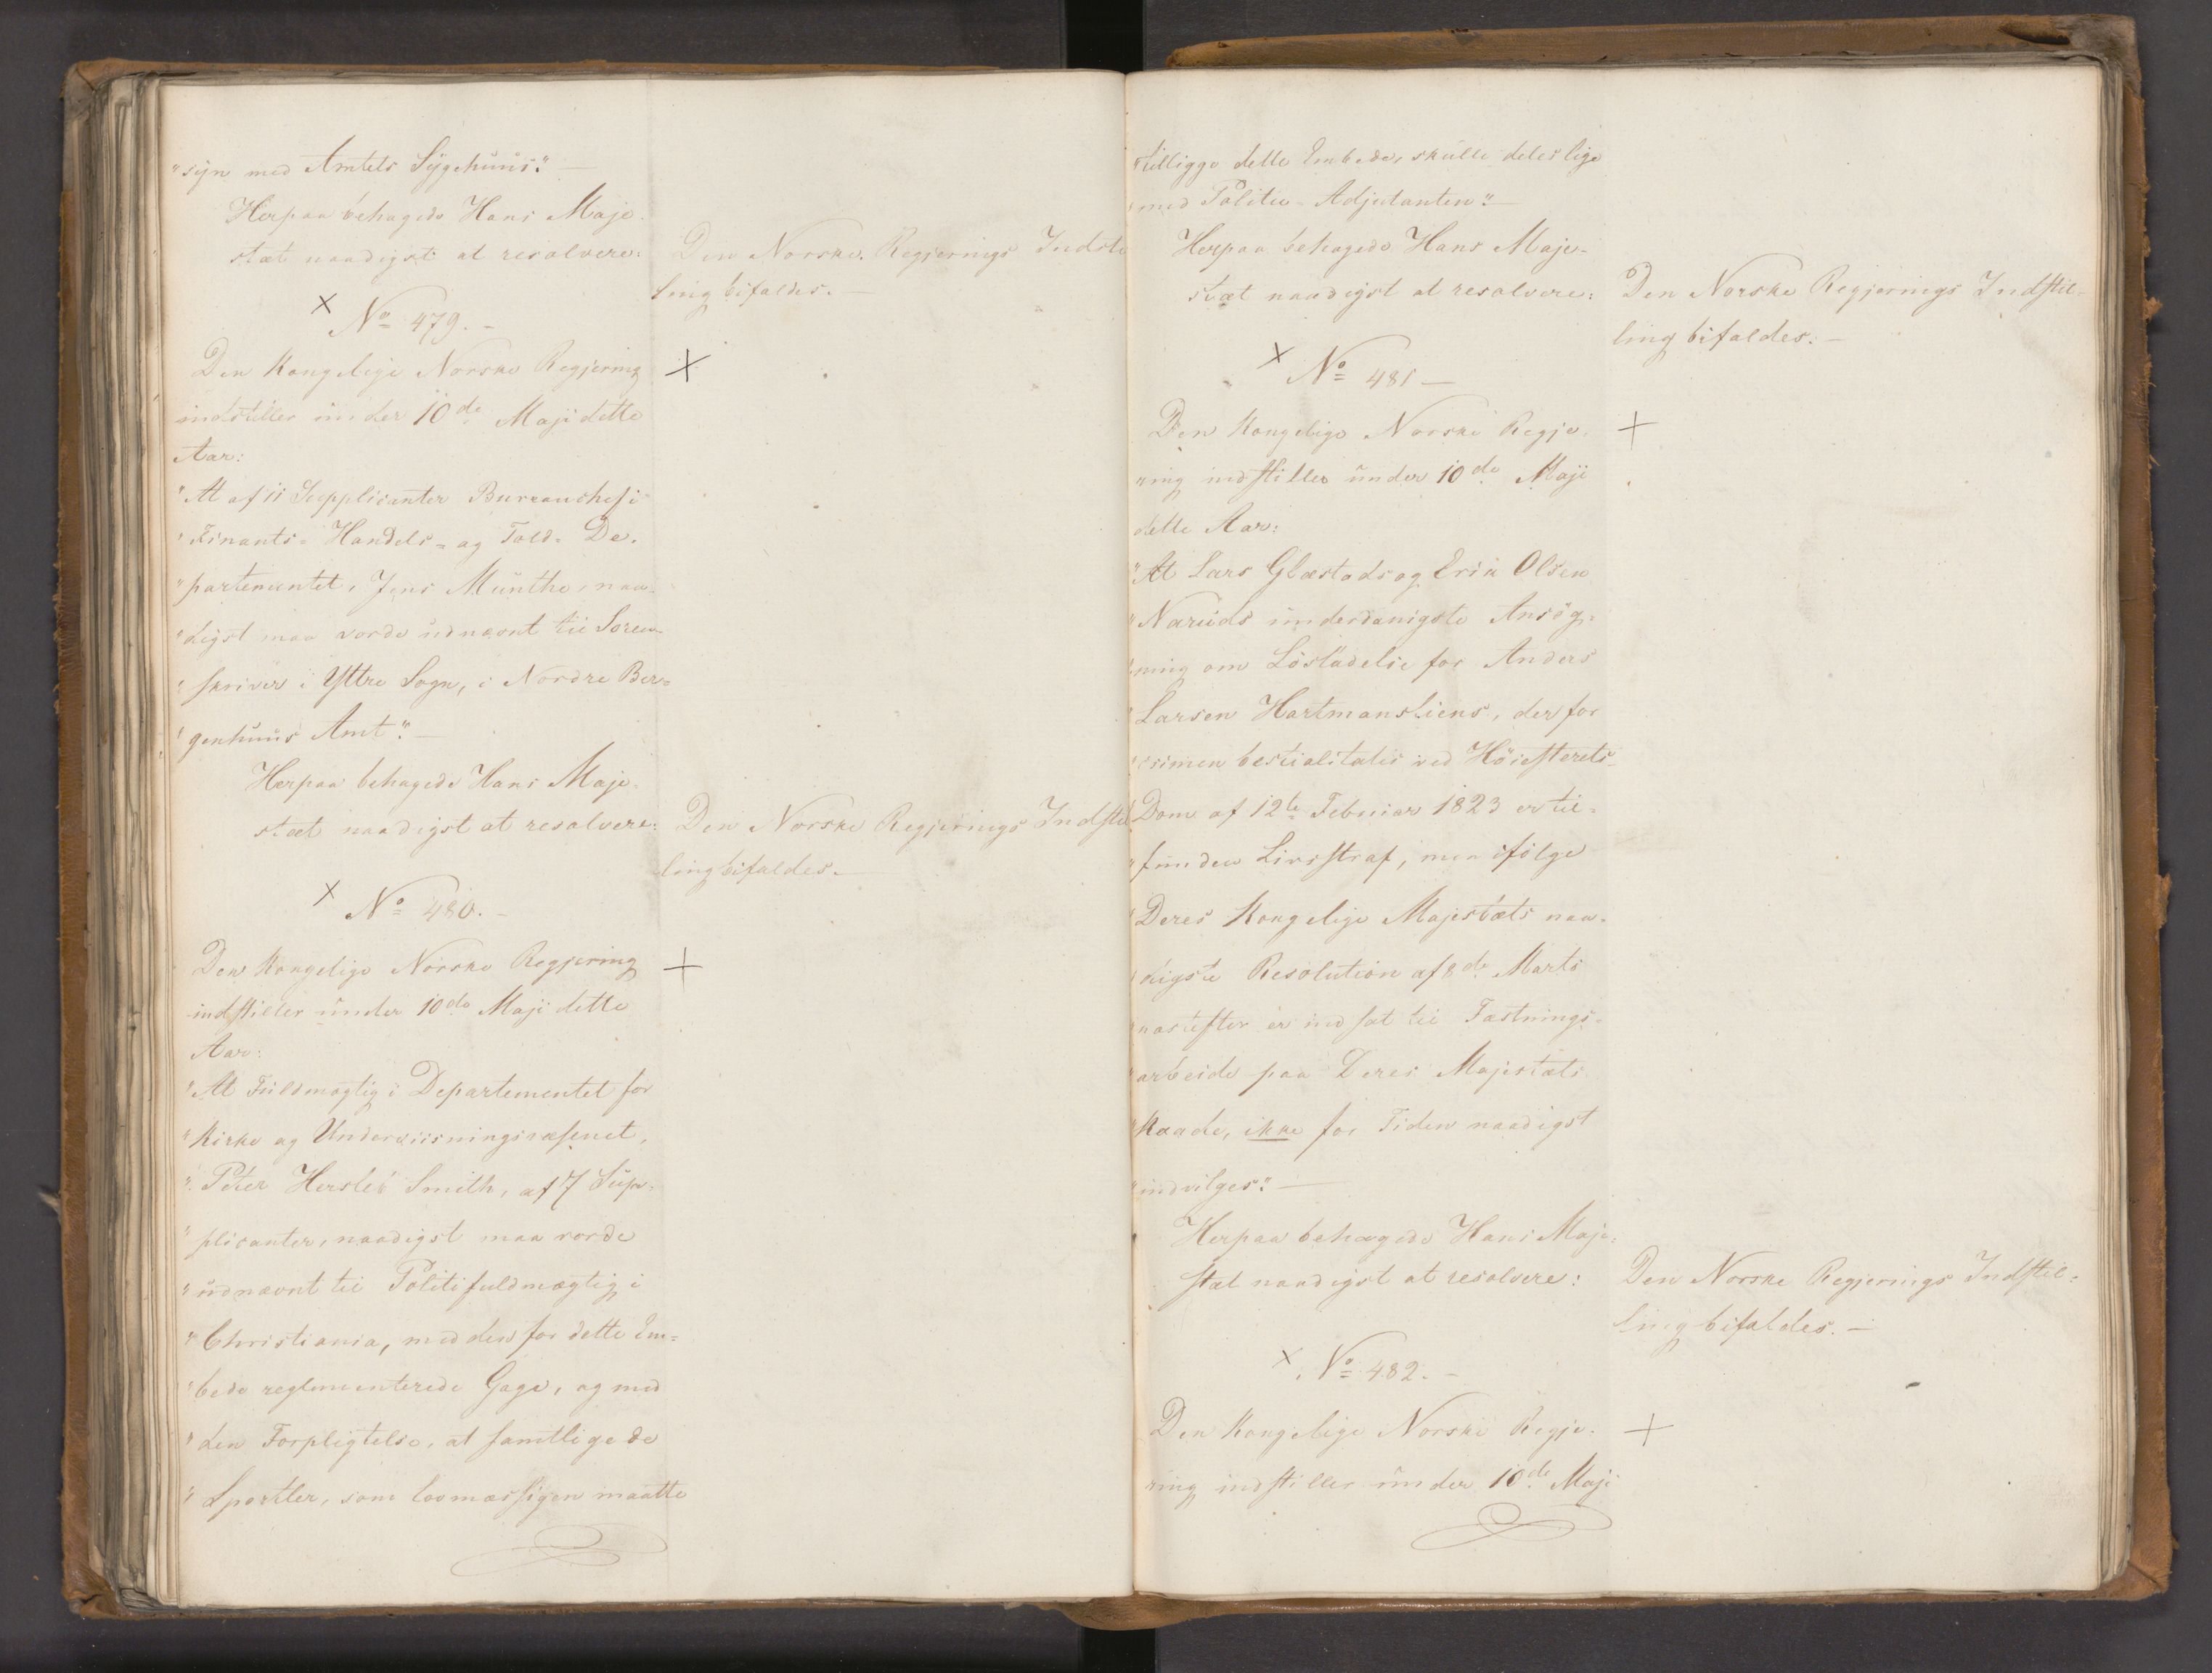 "syn med Amtets Sygehuus". —
Herpaa behagede Hans Maje-
stæt naadigst at resolvere:
Den Norske Regjerings Indstil
ling bifaldes. —
x No 479. -
Den Kongelige Norske Regjering
indstiller under 10de Maji dette
Aar:
"At af 11 Supplicanter Bureauchef i
"Finants- Handels- og Told- De-
"partementet, Jens Munthe, naa-
"digst maa vorde udnævnt til Soren-
"skriver i Yttre Sogn, i Nordre Ber-
"genhuus Amt". —
Herpaa behagede Hans Maje-
stæt naadigst at resolvere:
Den Norske Regjerings Indstil
ling bifaldes. —
x No 480. -
Den Kongelige Norske Regjering
indstiller under 10de Maji dette
Aar:
"At Fuldmægtig i Departementet for
"Kirke og Underviisningsvæsenet,
"Peter Hersleb Smith, af 7 Sup-
"plicanter, naadigst maa vorde
"udnævnt til Politifuldmægtig i
"Christiania, med den for dette Em-
"bede reglementerede Gage, og med
"den Forpligtelse, at samtlige de
"Sportler, som lovmæssigen maatte
"tilligge dette Embede, skulle deles lige
"med Politie-Adjutanten". —
Herpaa behagede Hans Maje-
stæt naadigst at resolvere:
Den Norske Regjerings Indstil-
ling bifaldes. —
x No 481 —
Den Kongelige Norske Regje-
ring indstiller under 10de Maji
dette Aar:
"At Lars Glæstads og Erik Olsen
"Naruds underdanigste Ansøg-
"ning om Løsladelse for Anders
"Larsen Hartmansliens, der for
"crimen bestialitatis ved Høiesterets-
"Dom af 12te Februar 1823 er til-
"funden Livsstraf, men ifølge
"Deres Kongelige Majestæts naa-
"digste Resolution af 8de Marts
"næstefter er indsat til Fæstnings-
"arbeide paa Deres Majestæts
"Naade, ikke for Tiden naadigst
"indvilges". —
Herpaa behagede Hans Maje-
stæt naadigst at resolvere:
Den Norske Regjerings Indstil-
ling bifaldes. —
x No 482. -
Den Kongelige Norske Regje-
ring indstiller under 10de Maji